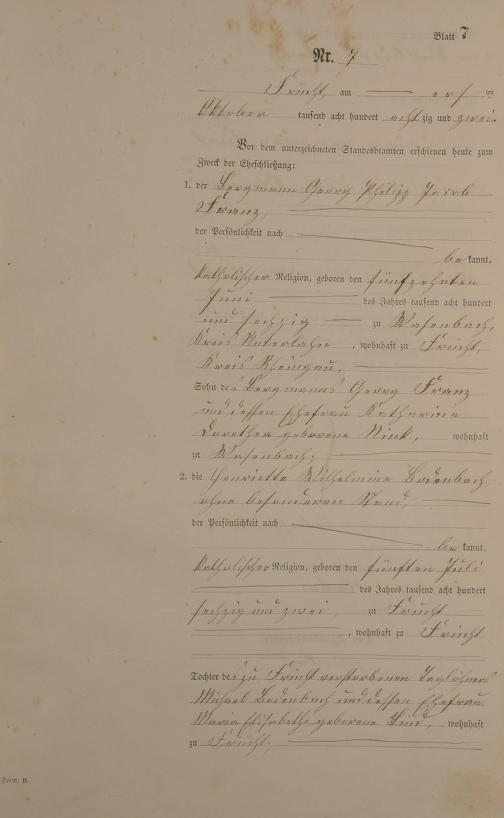 Blatt 7
Nr. 7
Frücht, am ersten
Oktober tausend acht hundert achtzig und zwei.
Vor dem unterzeichneten Standesbeamten erschienen heute zum
Zweck der Eheschließung:
1. der Bergmann Georg Philipp Jacob
Franz,
der Persönlichkeit nach
bekannt,
katholischer Religion, geboren den fünfzehnten
Juni des Jahres tausend acht hundert
und sechzig zu Wasenbach,
Kreis Unterlahn, wohnhaft zu Frücht,
Kreis Rheingau,
Sohn des Bergmanns Georg Franz
und dessen Ehefrau Katharina
Dorothea geborene wohnhaft
zu Wasenbach;
2. die Henriette Wilhelmine Bodenbach,
ohne besonderen Stand,
der Persönlichkeit nach
bekannt,
katholischer Religion, geboren den fünften Juli
des Jahres tausend acht hundert
sechzig und zwei, zu Frücht
, wohnhaft zu Frücht
Tochter des zu Frücht verstorbenen Taglöhners
Michael Bodenbach und dessen Ehefrau
Maria Elisabetha geborene wohnhaft
zu Frücht;
Form. B.